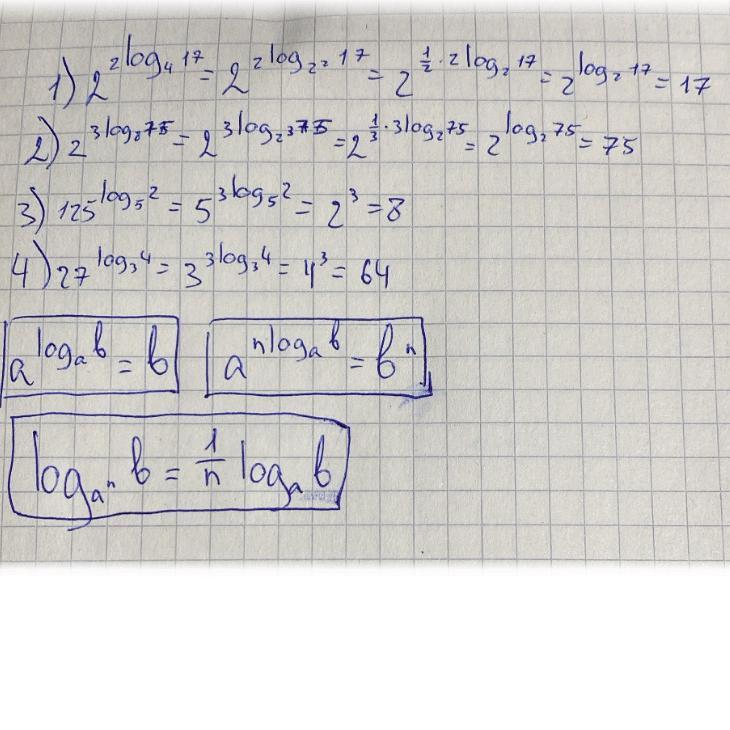 1) 2^{2log₄17} = 2^{2log_{2²}17} = 2^{\frac{1}{2}·2log₂17} = 2^{log₂17} = 17
2) 2^{3log₈75} = 2^{3log_{2³}75} = 2^{\frac{1}{3}·3log₂75} = 2^{log₂75} = 75
3) 125^{log₅2} = 5^{3log₅2} = 2³ = 8
4) 27^{log₃4} = 3^{3log₃4} = 4³ = 64
a^{log_a b} = b   a^{n log_a b} = b^n
log_{a^n} b = \frac{1}{n} log_a b